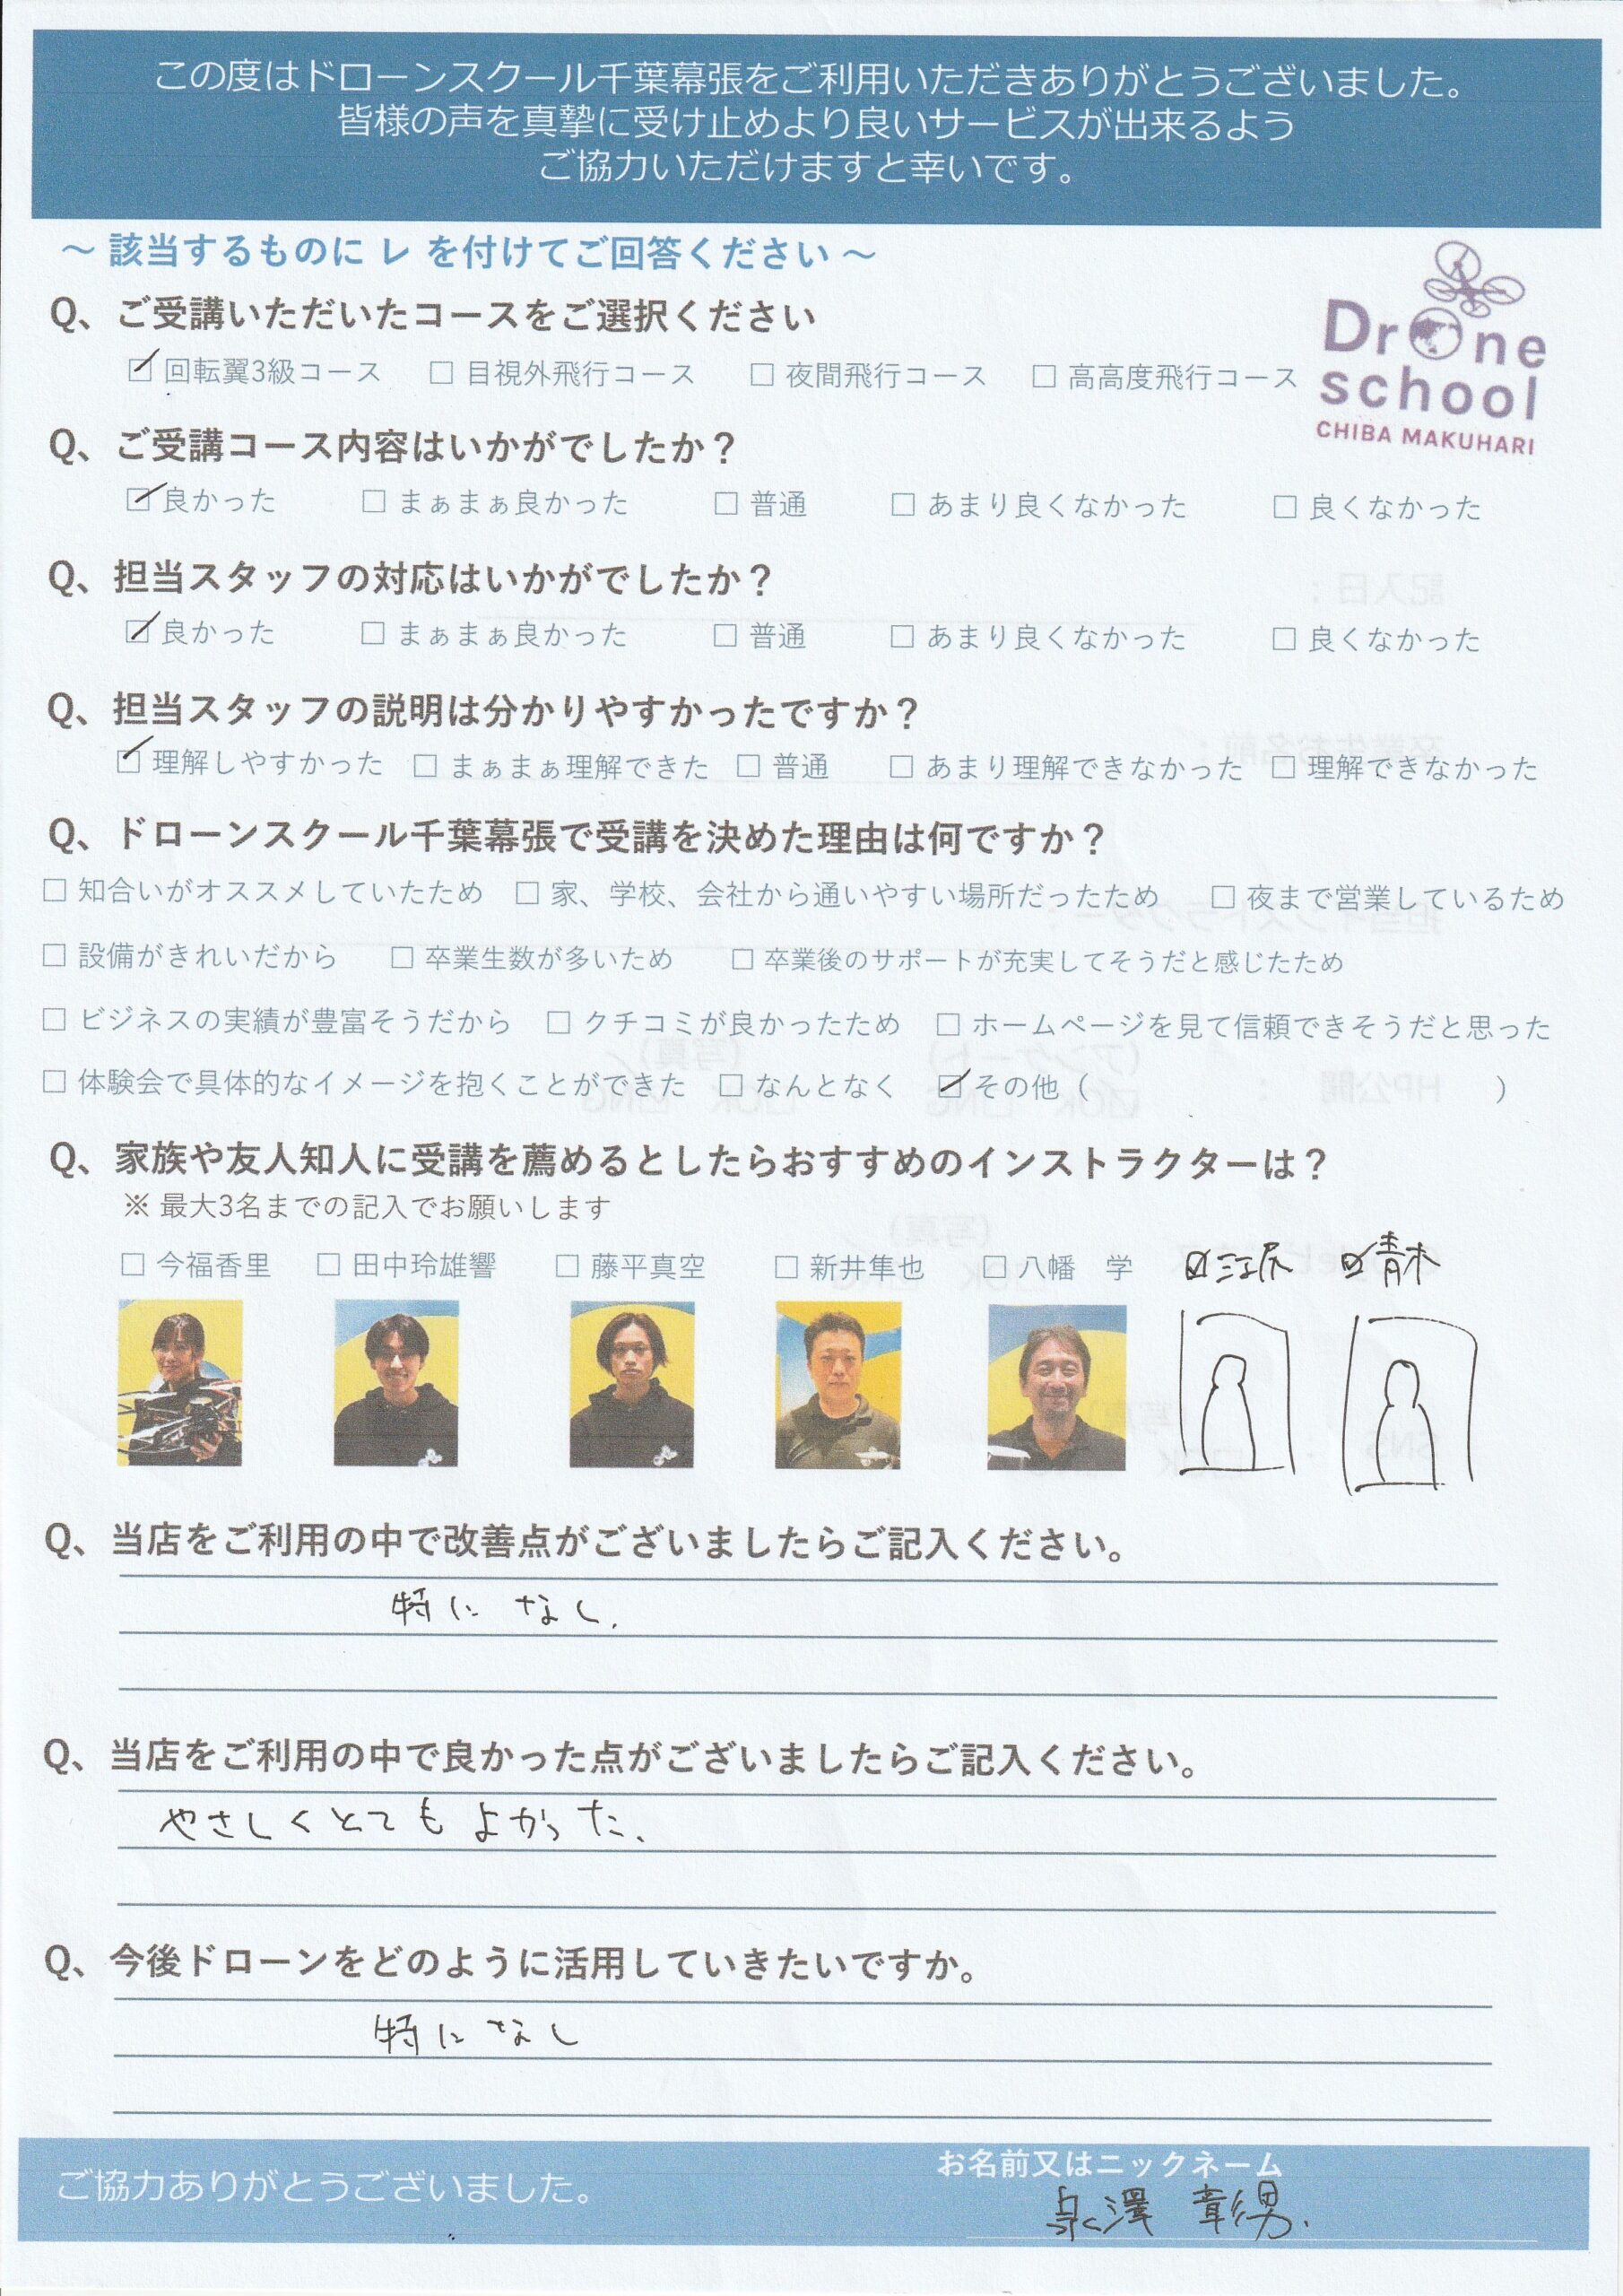 この度はドローンスクール千葉幕張をご利用いただきありがとうございました。
皆様の声を真摯に受け止めより良いサービスが出来るよう
ご協力いただけますと幸いです。
～ 該当するものに レ を付けてご回答ください ～
Drone
school
CHIBA MAKUHARI
Q、ご受講いただいたコースをご選択ください
☑ 回転翼3級コース □ 目視外飛行コース □ 夜間飛行コース □ 高高度飛行コース
Q、ご受講コース内容はいかがでしたか？
☑ 良かった □ まぁまぁ良かった □ 普通 □ あまり良くなかった □ 良くなかった
Q、担当スタッフの対応はいかがでしたか？
☑ 良かった □ まぁまぁ良かった □ 普通 □ あまり良くなかった □ 良くなかった
Q、担当スタッフの説明は分かりやすかったですか？
☑ 理解しやすかった □ まぁまぁ理解できた □ 普通 □ あまり理解できなかった □ 理解できなかった
Q、ドローンスクール千葉幕張で受講を決めた理由は何ですか？
□ 知合いがオススメしていたため □ 家、学校、会社から通いやすい場所だったため □ 夜まで営業しているため
□ 設備がきれいだから □ 卒業生数が多いため □ 卒業後のサポートが充実してそうだと感じたため
□ ビジネスの実績が豊富そうだから □ クチコミが良かったため □ ホームページを見て信頼できそうだと思った
□ 体験会で具体的なイメージを抱くことができた □ なんとなく ☑ その他（ ）
Q、家族や友人知人に受講を薦めるとしたらおすすめのインストラクターは？
※ 最大3名までの記入でお願いします
□ 今福香里 □ 田中玲雄響 □ 藤平真空 □ 新井隼也 □ 八幡 学 ☑ 江尻 ☑ 青木
Q、当店をご利用の中で改善点がございましたらご記入ください。
特になし.
Q、当店をご利用の中で良かった点がございましたらご記入ください。
やさしくとてもよかった、
Q、今後ドローンをどのように活用していきたいですか。
特になし
ご協力ありがとうございました。
お名前又はニックネーム
泉澤 章男.